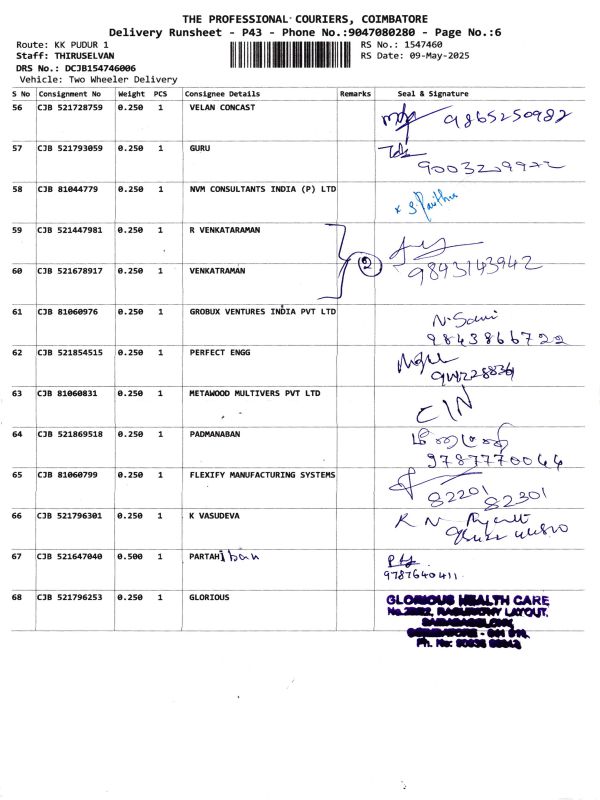 THE PROFESSIONAL COURIERS, COIMBATORE
Delivery Runsheet - P43 - Phone No.:9047080280 - Page No.:6
Route: KK PUDUR 1 RS No.: 1547460
Staff: THIRUSELVAN RS Date: 09-May-2025
DRS No.: DCJB154746006
Vehicle: Two Wheeler Delivery
S No Consignment No Weight PCS Consignee Details Remarks Seal & Signature
56 CJB 521728759 0.250 1 VELAN CONCAST 9865250982
57 CJB 521793059 0.250 1 GURU
58 CJB 81044779 0.250 1 NVM CONSULTANTS INDIA (P) LTD
59 CJB 521447981 0.250 1 R VENKATARAMAN
2
60 CJB 521678917 0.250 1 VENKATRAMAN 9843143942
61 CJB 81060976 0.250 1 GROBUX VENTURES INDIA PVT LTD
9843866722
62 CJB 521854515 0.250 1 PERFECT ENGG
63 CJB 81060831 0.250 1 METAWOOD MULTIVERS PVT LTD
64 CJB 521869518 0.250 1 PADMANABAN
9787770044
65 CJB 81060799 0.250 1 FLEXIFY MANUFACTURING SYSTEMS
82201 82301
66 CJB 521796301 0.250 1 K VASUDEVA
67 CJB 521647040 0.500 1 PARTAHiban
9787640411
68 CJB 521796253 0.250 1 GLORIOUS
GLORIOUS HEALTH CARE